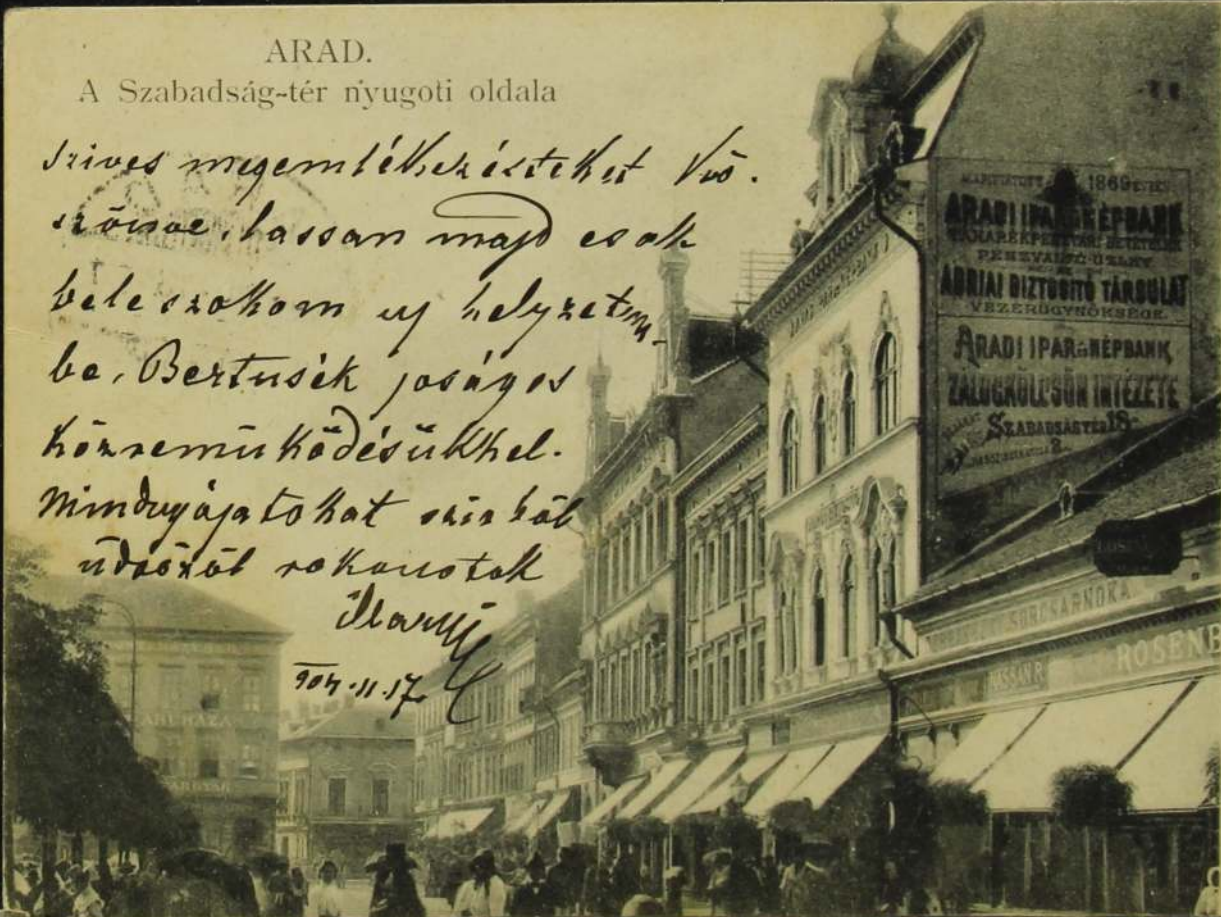 ARAD.
A Szabadság-tér nyugoti oldala
szives megemlékezésteket kö-
szönve, lassan majd csak
bele szokom uj helyzetem-
be, Bertusék joságos
közremüködésükkel.
Mindnyájatokat szivből
üdvözöl rokonotok
904.11.17
1869
ARADI IPAR és NÉPBANK
PÉNZVÁLTÓ ÜZLET
ADRIAI BIZTOSÍTÓ TÁRSULAT
VEZÉRÜGYNÖKSÉGE.
ARADI IPAR és NÉPBANK
ZÁLOGKÖLCSÖN INTÉZETE
SZABADSÁGTÉR 18
SÖRCSARNOKA
ROSENB
ÁRUHÁZA